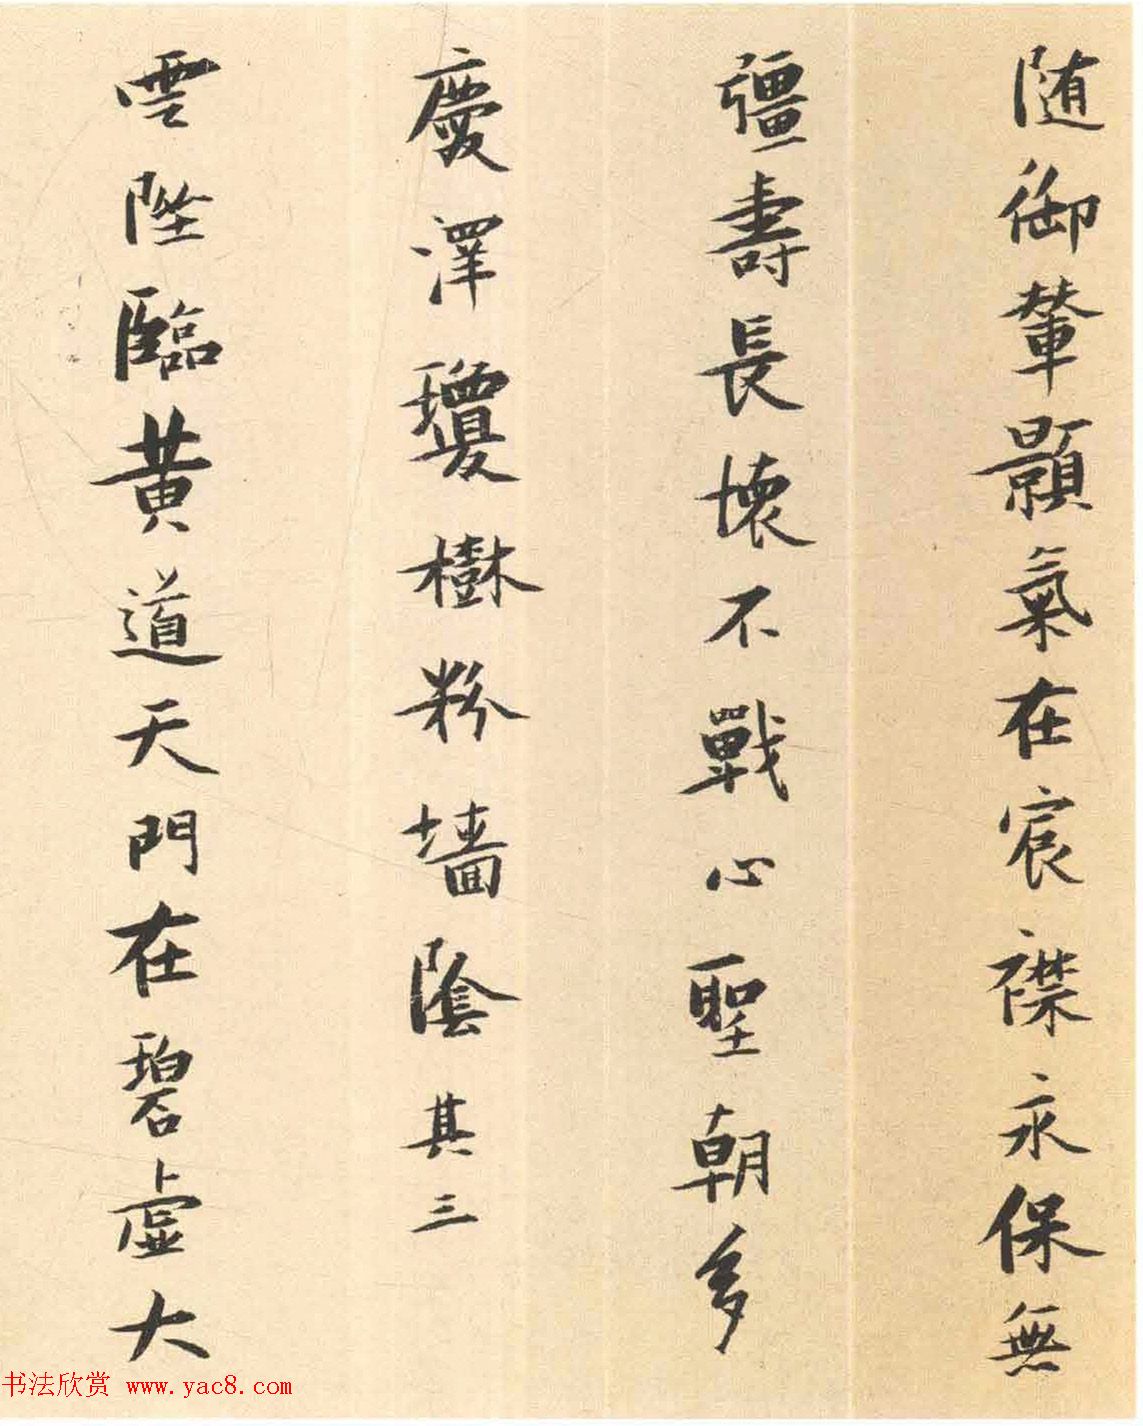 随御輦顥氣在宸襟永保無
疆壽長懷不戰心聖朝多
慶澤瓊樹粉墻陰其三
雲陛臨黃道天門在碧虛大
书法欣赏 www.yac8.com